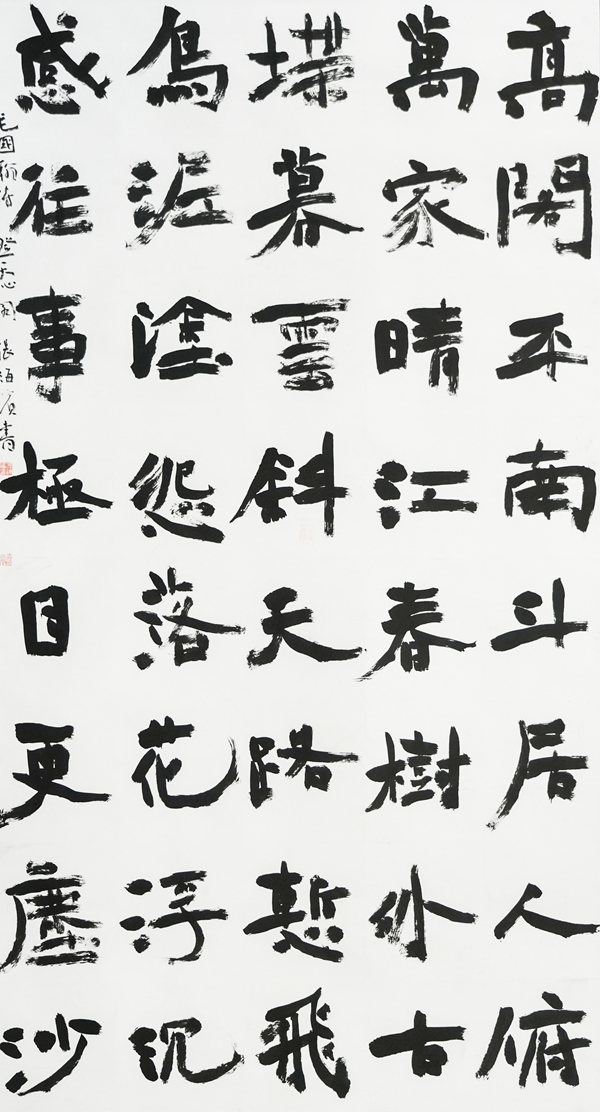 高閣平南斗居人俯
萬家晴江春樹外古
堞暮雲斜天路慙飛
鳥泥塗怨落花浮沉
感往事極目更塵沙
毛國翰詩 登天心閣 張書